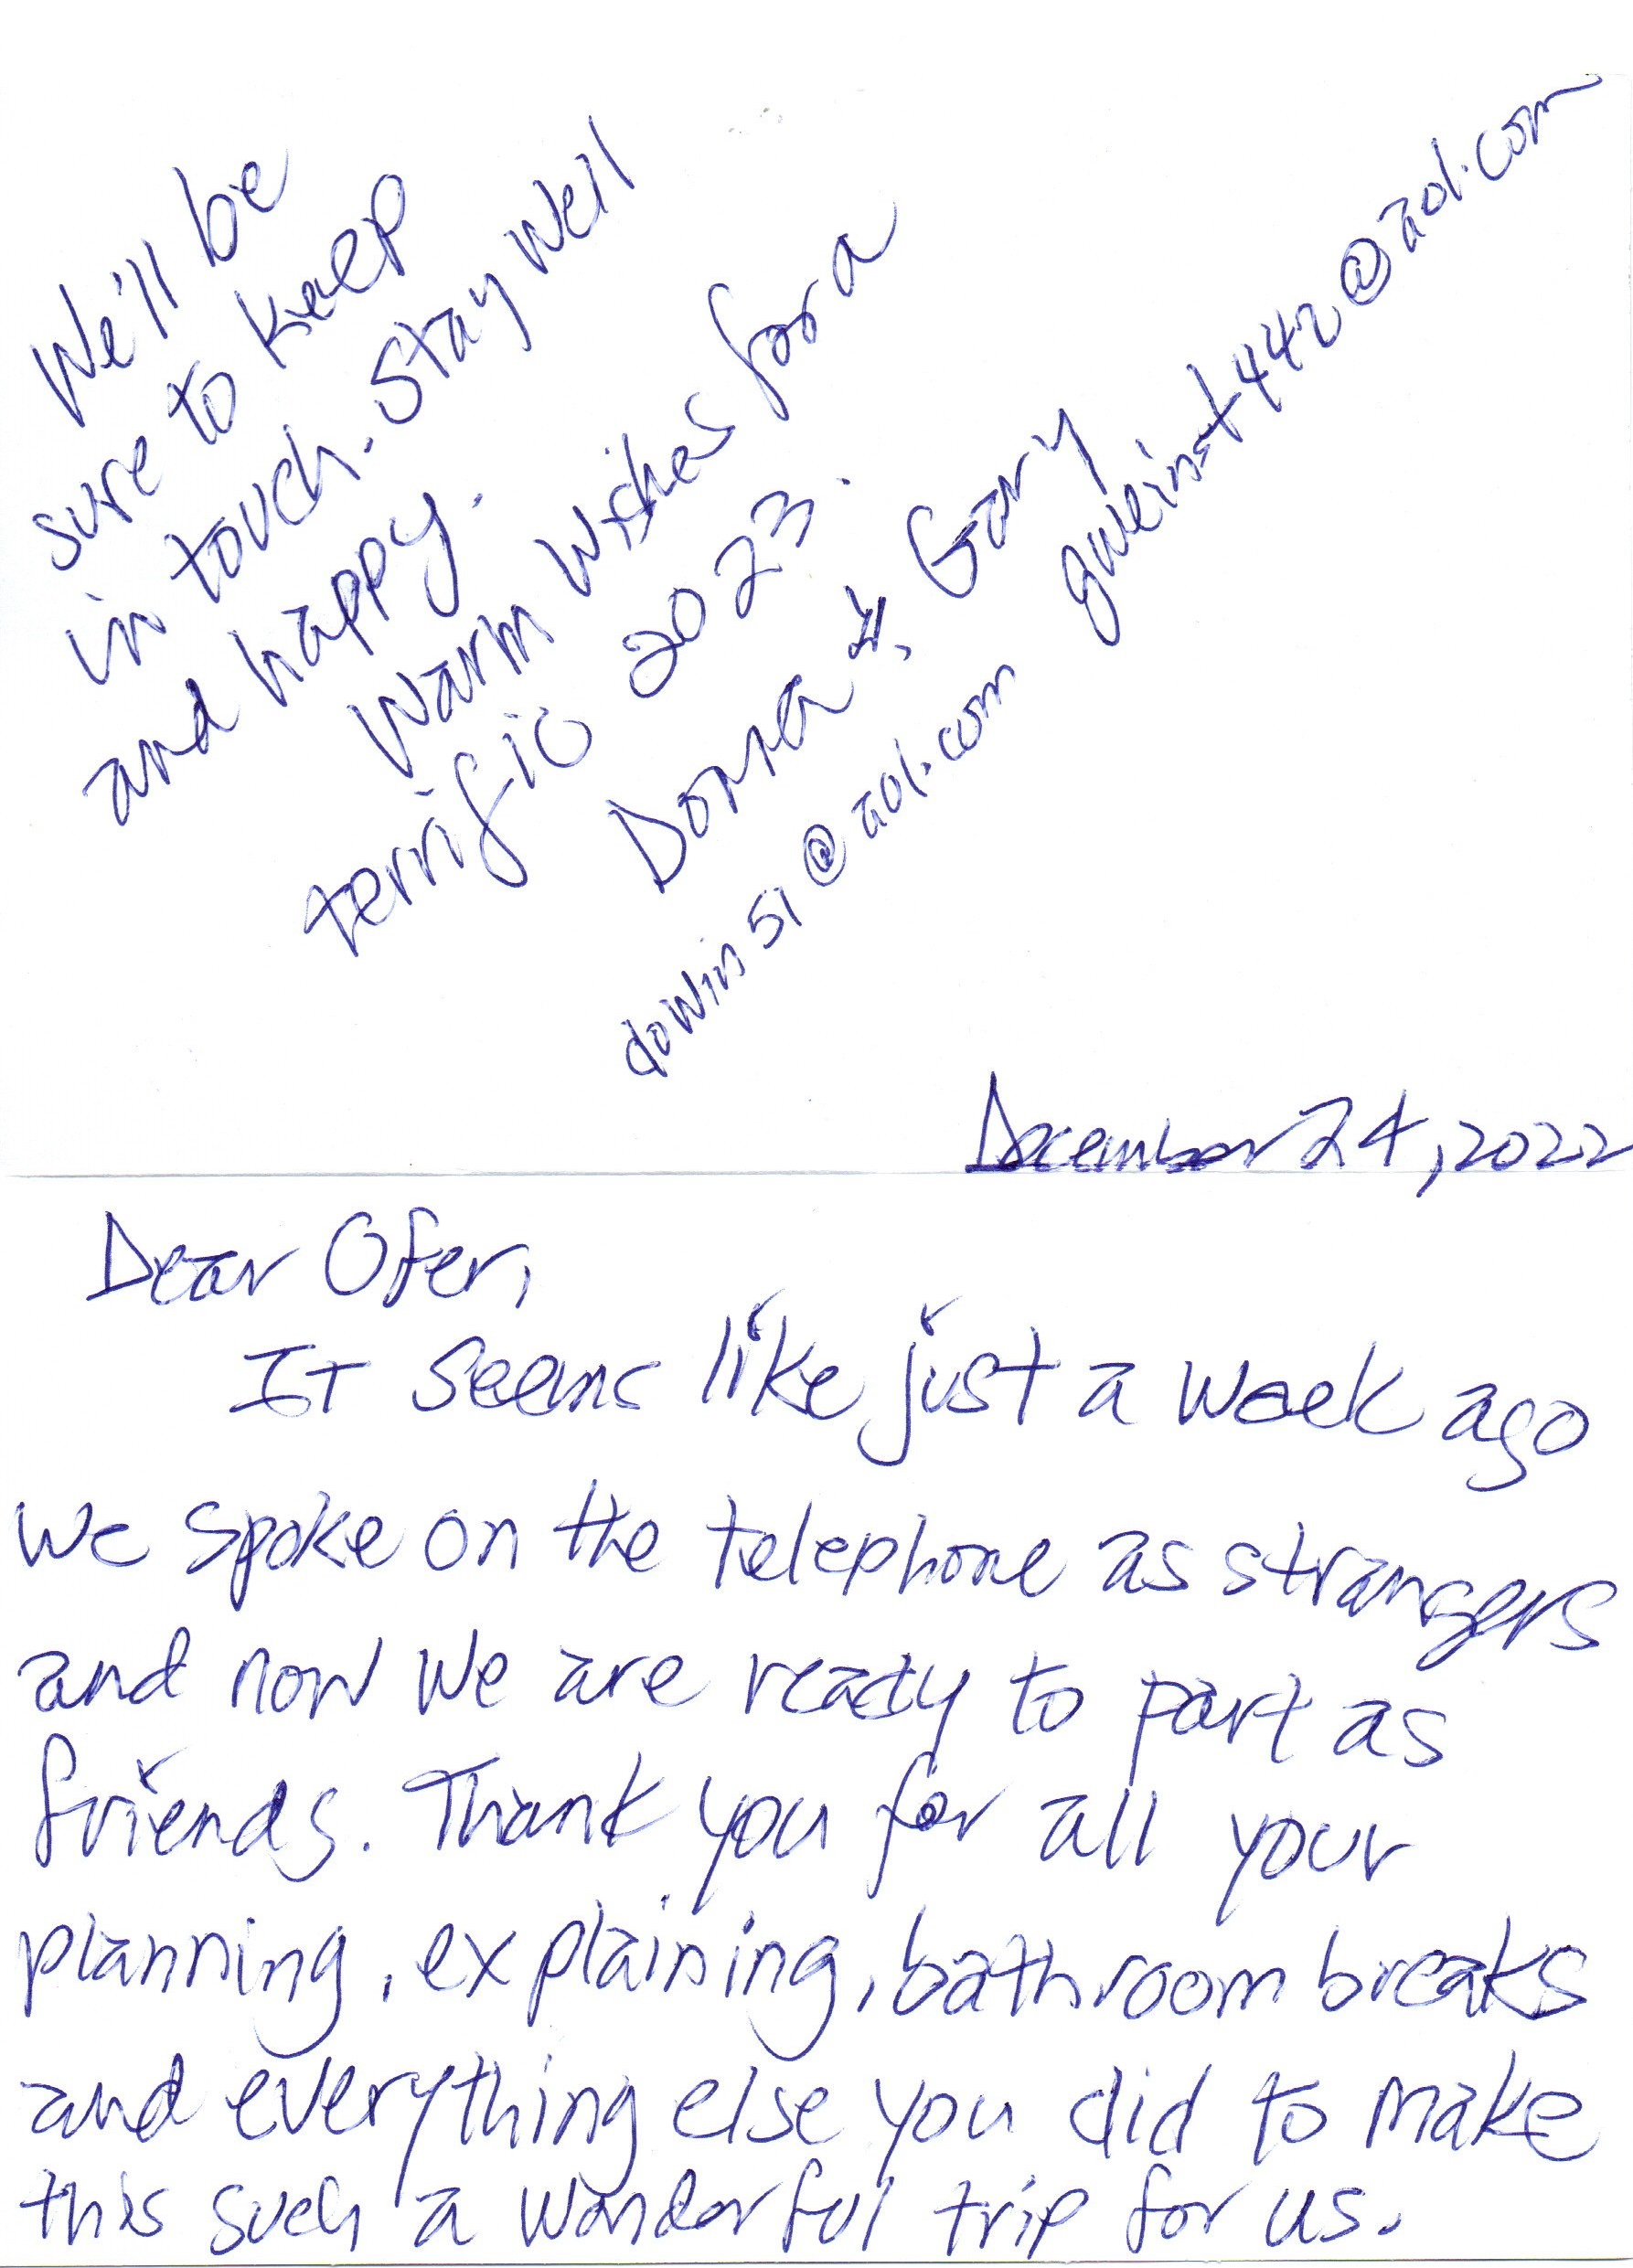 December 24, 2022
Dear Ofer,
It seems like just a week ago
we spoke on the telephone as strangers
and now we are ready to part as
friends. Thank you for all your
planning, explaining, bathroom breaks
and everything else you did to make
this such a wonderful trip for us.
We'll be
sure to keep
in touch. Stay well
and happy.
Warm wishes for a
terrific 2023.
Donna & Gary
dowin51@aol.com gweinst442@aol.com